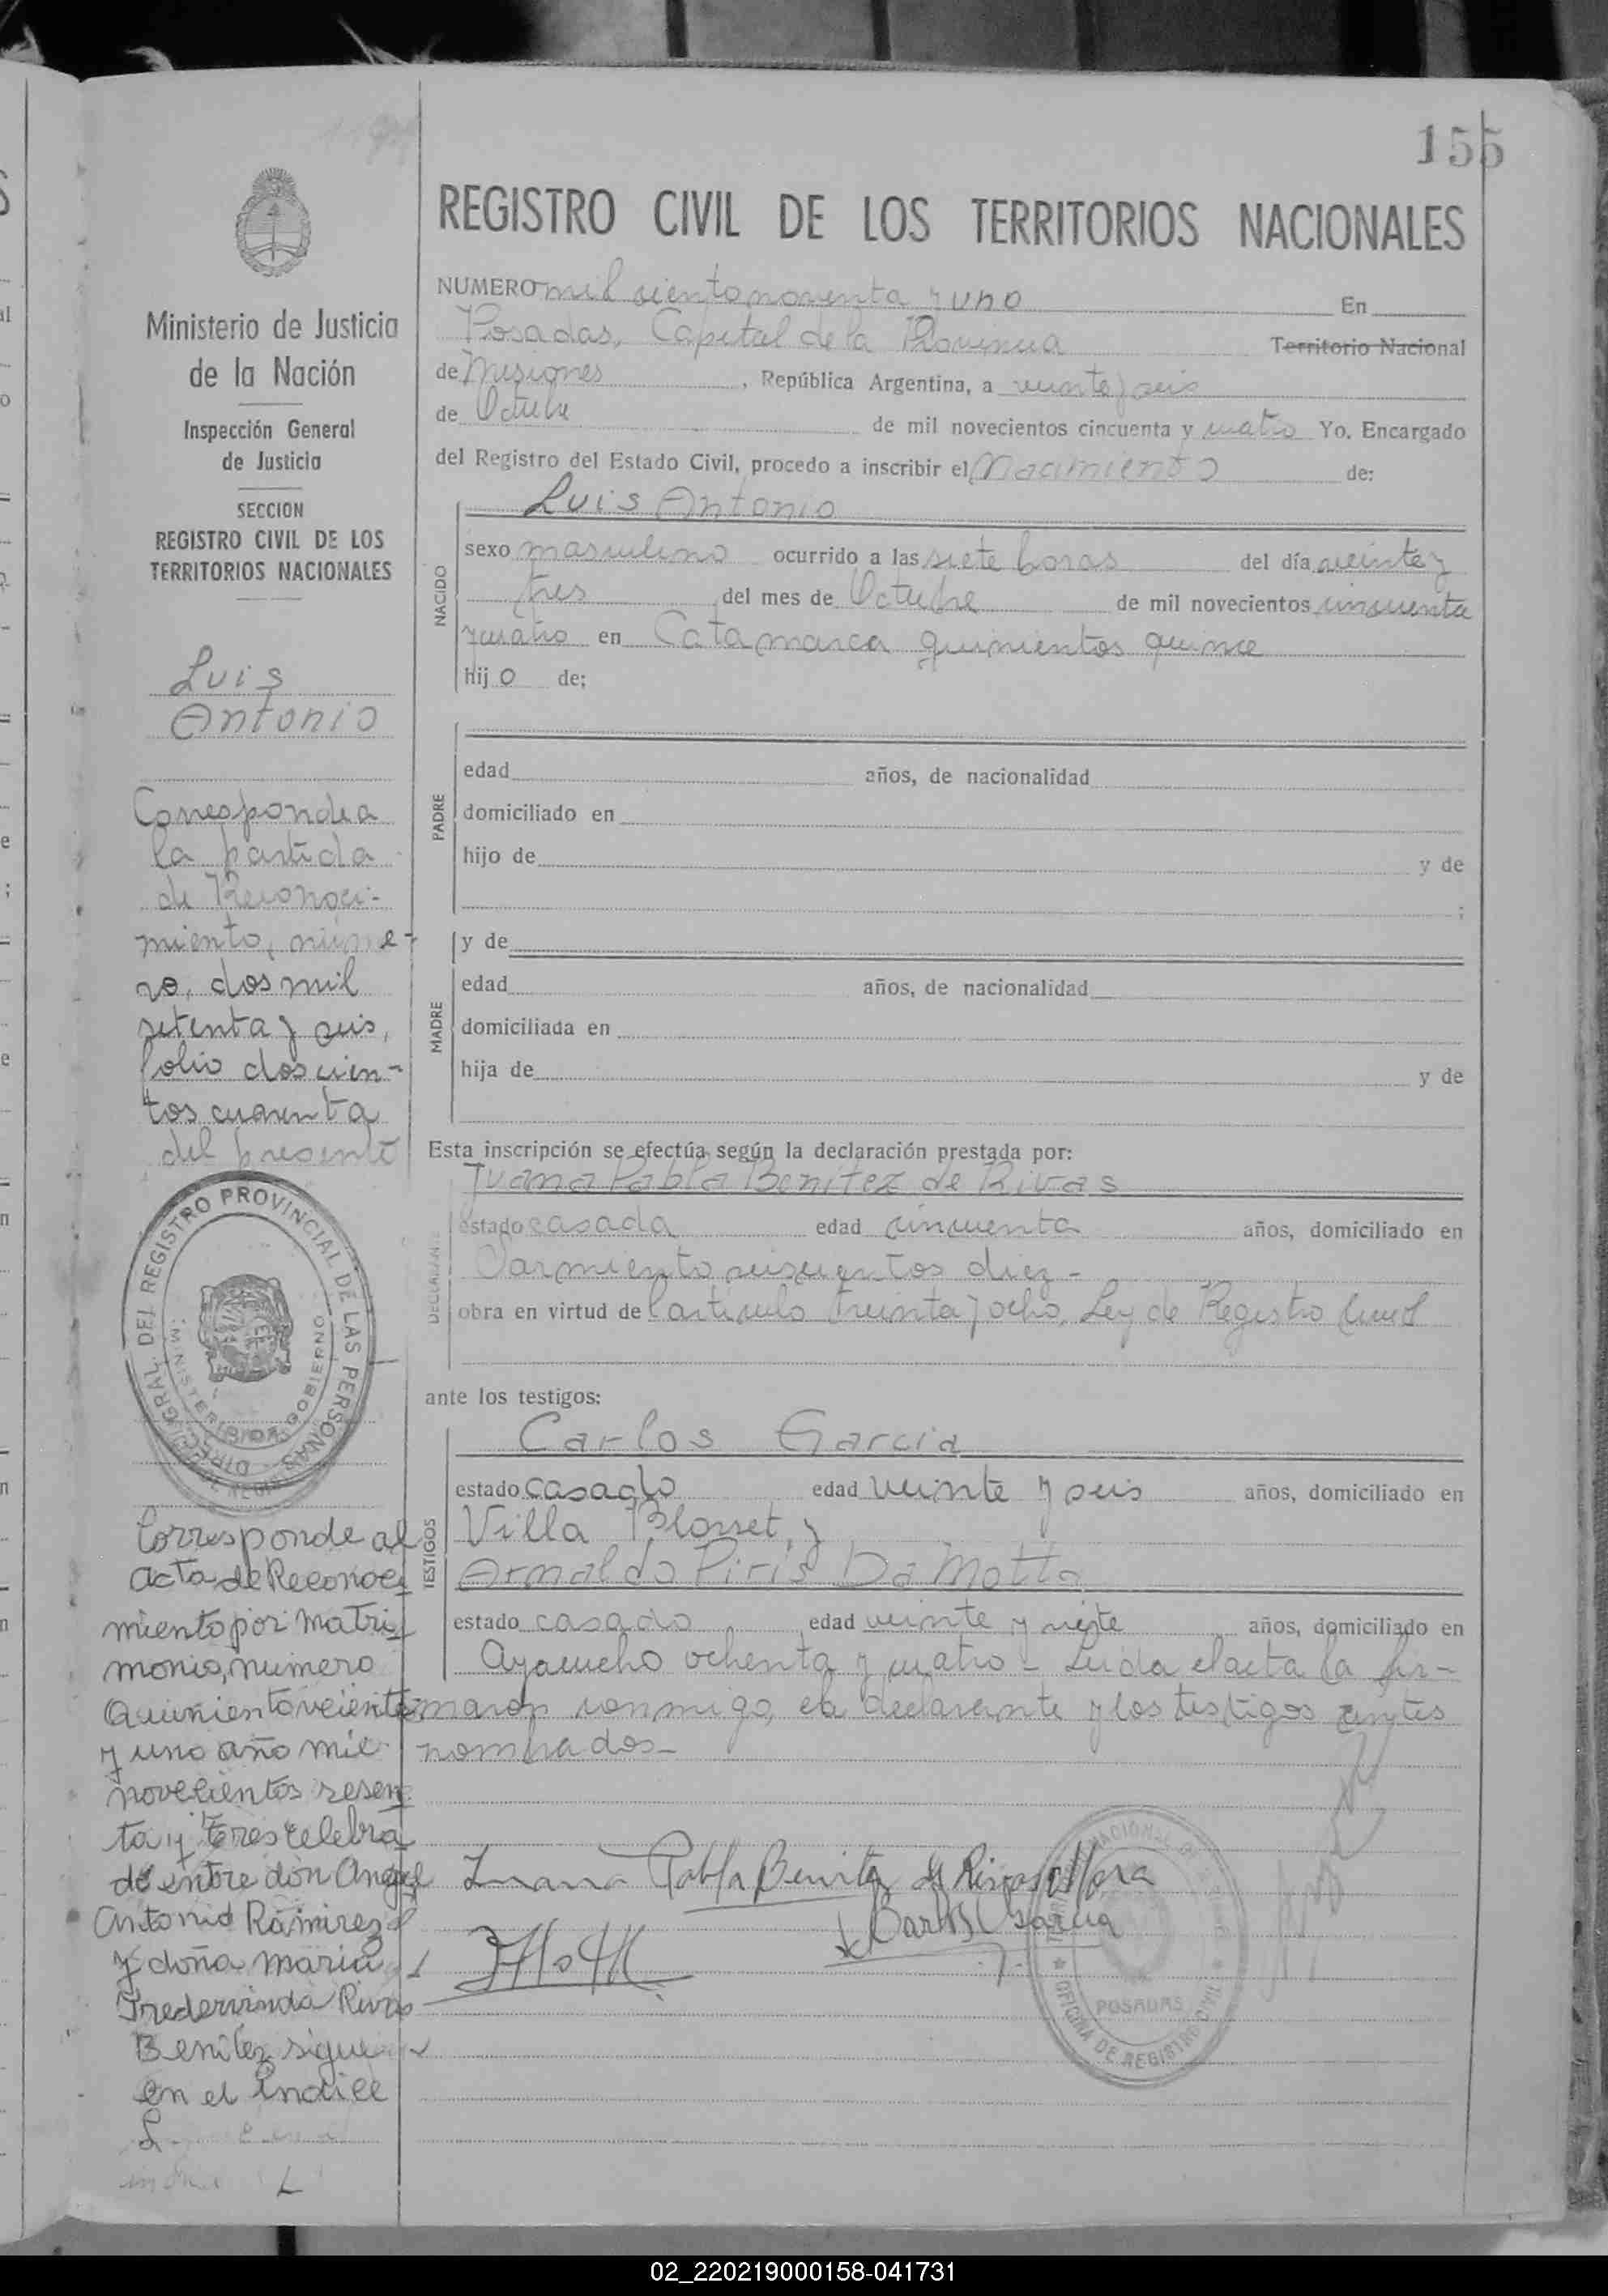 155
REGISTRO CIVIL DE LOS TERRITORIOS NACIONALES
Ministerio de Justicia
de la Nación
Inspección General
de Justicia
SECCION
REGISTRO CIVIL DE LOS
TERRITORIOS NACIONALES
Luis
Antonio
Corresponde a
la partida
de Reconoci-
miento, núme-
ro, dos mil
setenta y seis,
folio doscien-
tos cuarenta
del presente
DIRECCION GRAL. DEL REGISTRO PROVINCIAL DE LAS PERSONAS
MINISTERIO DE GOBIERNO
Corresponde al
acta de Reconoci
miento por Matri
monio, numero
Quinientoveiente
y uno año mil
novecientos sesen
ta y tres celebra
do entre don Angel
Antonio Ramirez
y doña Maria
Fredervinda Rivas
Benitez sigue
en el indice
L
NUMERO mil ciento noventa y uno En
Posadas, Capital de la Provincia Territorio Nacional
de Misiones, República Argentina, a veinte y seis
de Octubre de mil novecientos cincuenta y cuatro Yo, Encargado
del Registro del Estado Civil, procedo a inscribir el Nacimiento de:
NACIDO
Luis Antonio
sexo masculino ocurrido a las siete horas del día veinte y
tres del mes de Octubre de mil novecientos cincuenta
y cuatro en Catamarca quinientos quince
hijo de:
PADRE
edad años, de nacionalidad
domiciliado en
hijo de y de
;
MADRE
y de
edad años, de nacionalidad
domiciliada en
hija de y de
Esta inscripción se efectúa según la declaración prestada por:
DECLARANTE
Juana Pabla Benitez de Rivas
estado casada edad cincuenta años, domiciliado en
Sarmiento seiscientos diez-
obra en virtud del artículo treinta y ocho, Ley de Registro Civil
ante los testigos:
TESTIGOS
Carlos Garcia
estado casado edad veinte y seis años, domiciliado en
Villa Blosset, y
Arnaldo Piris Da Motta
estado casado edad veinte y siete años, domiciliado en
Ayacucho ochenta y cuatro - Leida el acta la fir-
maron conmigo, la declarante y los testigos antes
nombrados-
Juana Pabla Benitez de Rivas
Carlos Garcia
POSADAS
OFICINA DE REGISTRO CIVIL
02_220219000158-041731